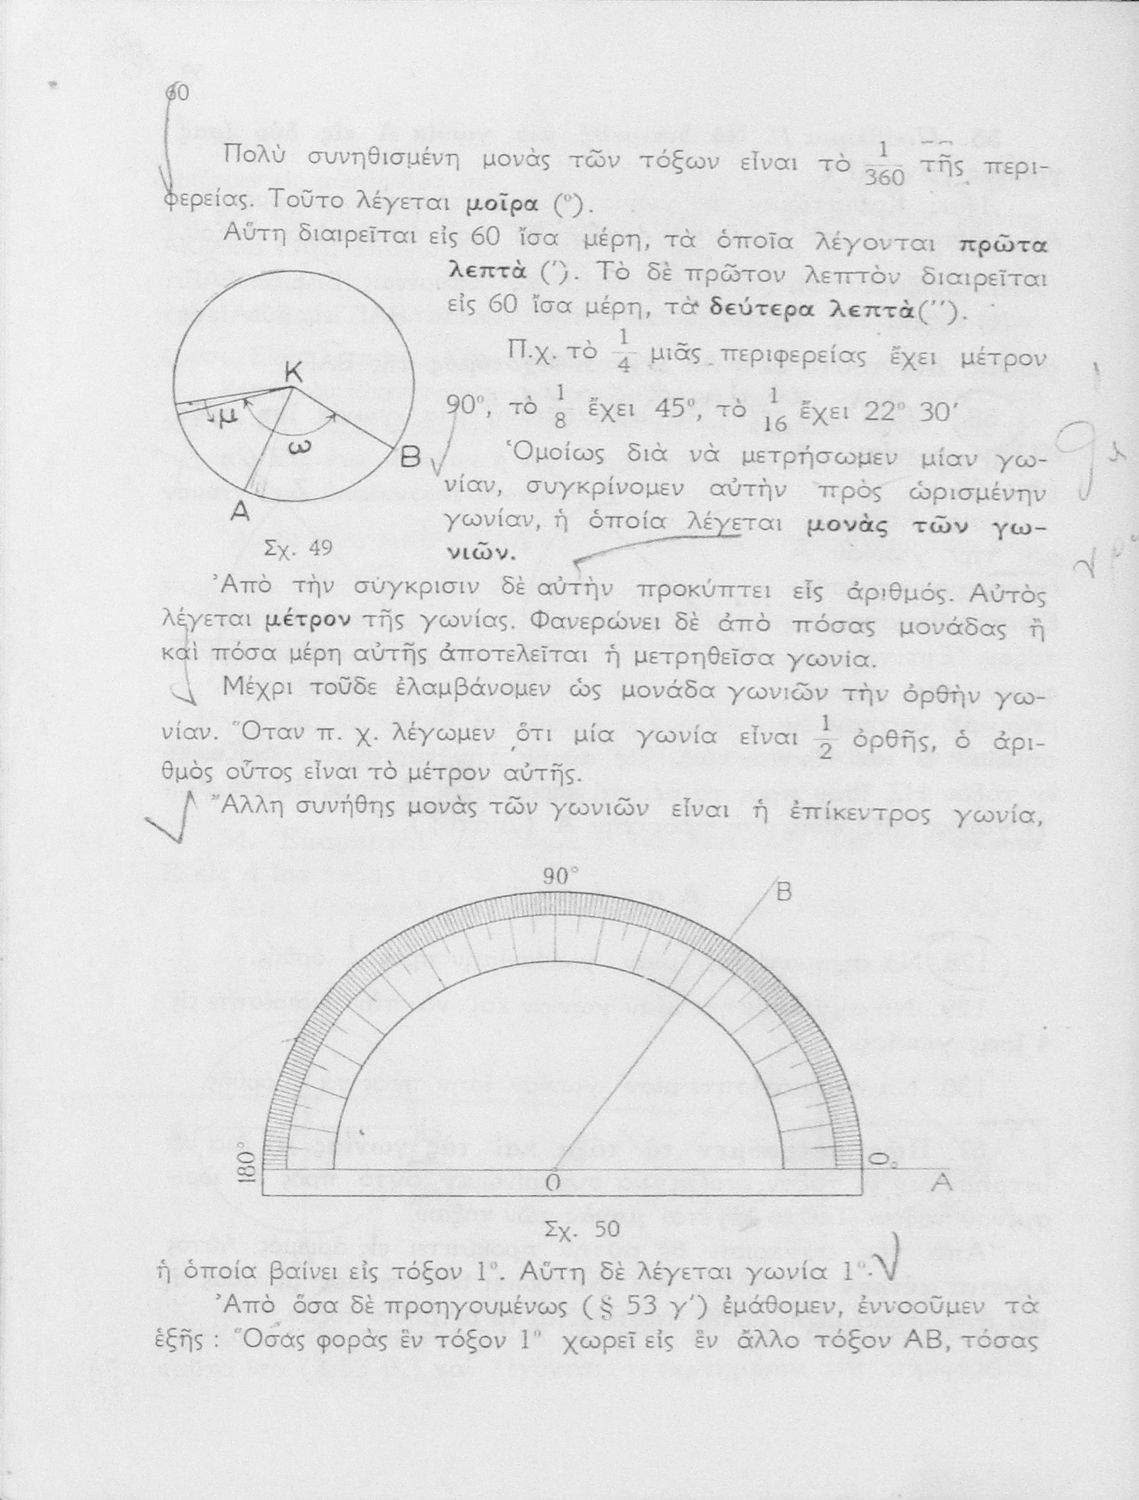 60
Πολὺ συνηθισμένη μονὰς τῶν τόξων εἶναι τὸ 1/360 τῆς περι-
φερείας. Τοῦτο λέγεται μοῖρα (°).
Αὕτη διαιρεῖται εἰς 60 ἴσα μέρη, τὰ ὁποῖα λέγονται πρῶτα
λεπτὰ (′). Τὸ δὲ πρῶτον λεπτὸν διαιρεῖται
εἰς 60 ἴσα μέρη, τὰ δεύτερα λεπτὰ(′′).
Π.χ. τὸ 1/4 μιᾶς περιφερείας ἔχει μέτρον
90°, τὸ 1/8 ἔχει 45°, τὸ 1/16 ἔχει 22° 30′
Ὁμοίως διὰ νὰ μετρήσωμεν μίαν γω-
νίαν, συγκρίνομεν αὐτὴν πρὸς ὡρισμένην
γωνίαν, ἡ ὁποία λέγεται μονὰς τῶν γω-
νιῶν.
Κ
μ
ω
Β
Α
Σχ. 49
Ἀπὸ τὴν σύγκρισιν δὲ αὐτὴν προκύπτει εἷς ἀριθμός. Αὐτὸς
λέγεται μέτρον τῆς γωνίας. Φανερώνει δὲ ἀπὸ πόσας μονάδας ἢ
καὶ πόσα μέρη αὐτῆς ἀποτελεῖται ἡ μετρηθεῖσα γωνία.
Μέχρι τοῦδε ἐλαμβάνομεν ὡς μονάδα γωνιῶν τὴν ὀρθὴν γω-
νίαν. Ὅταν π. χ. λέγωμεν ὅτι μία γωνία εἶναι 1/2 ὀρθῆς, ὁ ἀρι-
θμὸς οὗτος εἶναι τὸ μέτρον αὐτῆς.
Ἄλλη συνήθης μονὰς τῶν γωνιῶν εἶναι ἡ ἐπίκεντρος γωνία,
90°
Β
180°
Ο
0°
Α
Σχ. 50
ἡ ὁποία βαίνει εἰς τόξον 1°. Αὕτη δὲ λέγεται γωνία 1°.
Ἀπὸ ὅσα δὲ προηγουμένως (§ 53 γ′) ἐμάθομεν, ἐννοοῦμεν τὰ
ἑξῆς : Ὅσας φορὰς ἓν τόξον 1° χωρεῖ εἰς ἓν ἄλλο τόξον ΑΒ, τόσας